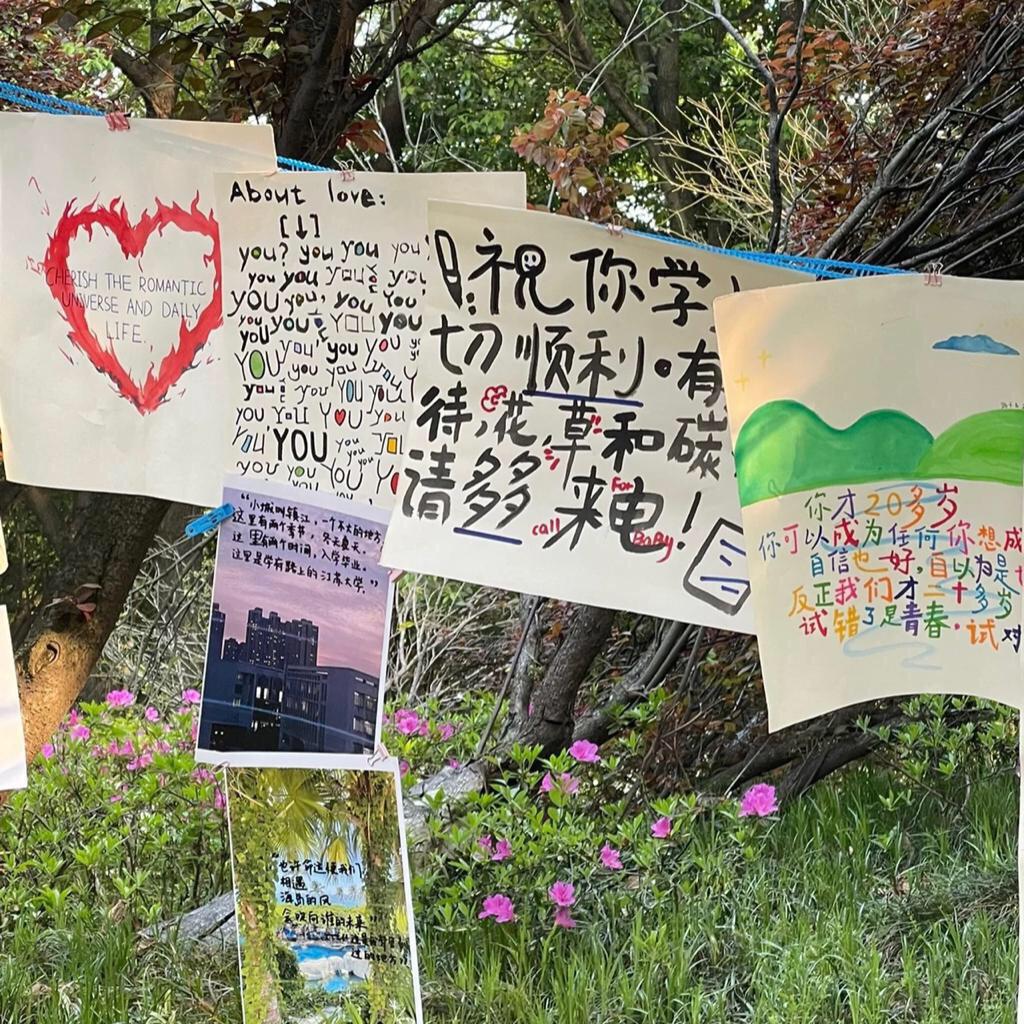 CHERISH THE ROMANTIC
UNIVERSE AND DAILY
LIFE.
About love:
[↓]
you? you you you
you you you you
you you, you you
you you you you
you you you you
you you you you
you you you you
you you you you
you YOU you
you you you you
祝你学
切顺利。有
待,花,草和碳
请多多来电!
call For BaBy
“小城叫镇江,一个不大的地方
这里有两个季节,冬天夏天,
这里有两个时间,入学毕业。
这里是学府路上的江苏大学。”
你才20多岁
你可以成为任何你想成
自信也好,自以为是
反正我们才二十多岁
试错了是青春,试对
“也许命运使我们
相遇
海岛的风
会吹向谁的未来”
过的地方